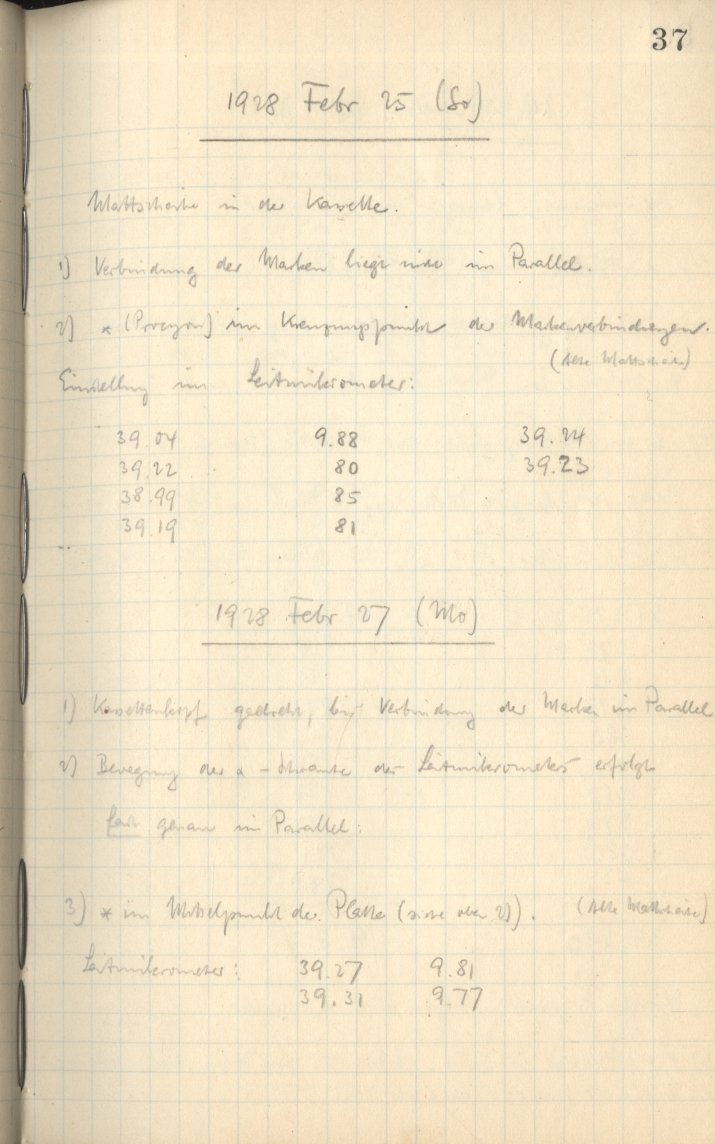 37
1928 Febr 25 (So)
Mattscheibe in der Kassette.
1) Verbindung der Marken liegt nicht im Parallel.
2) * (Procyon) im Kreuzungspunkt der Markenverbindungen.
(Alte Mattscheibe)
Einstellung im Leitmikrometer:
39.04 9.88 39.24
39.22 80 39.23
38.99 85
39.19 81
1928 Febr 27 (Mo)
1) Kassettenkopf gedreht, bis Verbindung der Marken im Parallel
2) Bewegung der α-Schraube des Leitmikrometers erfolgt
fast genau im Parallel:
3) * im Mittelpunkt der Platte (siehe oben 2)). (Alte Mattscheibe)
Leitmikrometer: 39.27 9.81
39.31 9.77